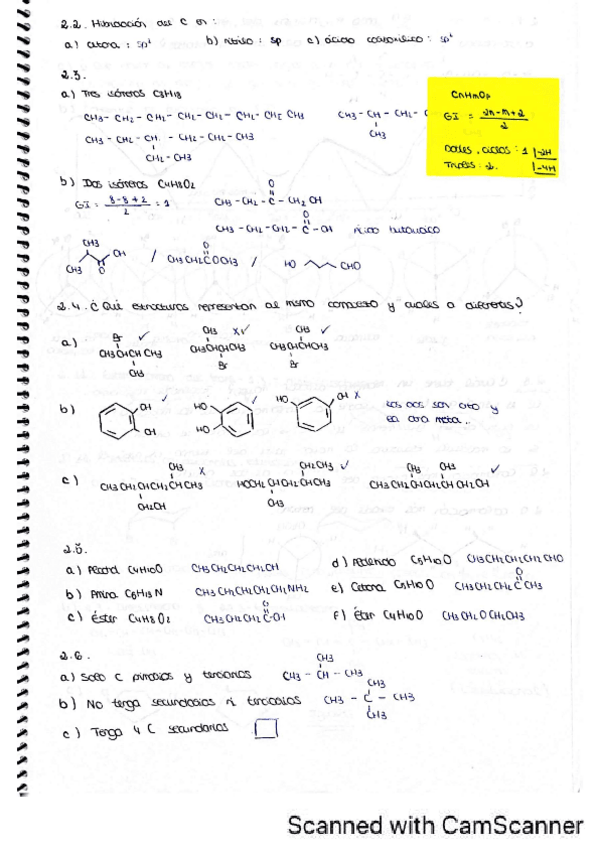 2.2. Hibridación del C en:
a) cetona : sp² b) nitrilo : sp c) ácido carboxílico : sp²
2.3.
a) Tres isómeros
CH3 - CH2 - CH2 - CH2 - CH2 - CH2 - CH2 CH3 CH3 - CH - CH2 -
CH3
CH3 - CH2 - CH - CH2 - CH2 - CH3
CH2 - CH3
CnHmOp
GI = 2n-m+2
2
Dobles, ciclos : 1 |-2H
Triples : 2. |-4H
b) Dos isómeros C4H8O2
GI = 8-8+2 = 1
2
O
CH3 - CH2 - C - CH2 OH
O
CH3 - CH2 - CH2 - C - OH ácido butanoico
CH3
CH3 OH
O
/ O
CH3CH2COCH3 / HO CHO
2.4. ¿Qué estructuras representan al mismo compuesto y cuales a diferentes?
a) Br ✓ CH3 X✓ CH3 ✓
CH3CHCH CH3 CH3CHCHCH3 CH3CHCHCH3
CH3 Br Br
b) OH ✓ HO ✓ HO OH X
OH HO
Los dos son orto y
la otra meta..
c) CH3 X CH2CH3 ✓ CH3 CH3 ✓
CH3CH2CHCH2CHCH3 HOCH2CHCH2CHCH3 CH3CH2CHCH2CHCH2OH
CH2OH CH3
2.5.
a) Alcohol C4H10O CH3CH2CH2CH2OH d) Aldehido C5H10O CH3CH2CH2CH2CHO
b) Amina C5H13N CH3CH2CH2CH2CH2NH2 e) Cetona C5H10O CH3CH2CH2CCH3
O
c) Éster C4H8O2 CH3CH2CH2C-OH f) Éter C4H10O CH3CH2OCH2CH3
O
2.6.
a) Solo C primarios y terciarios CH3 - CH - CH3
CH3
b) No tenga secundarios ni terciarios CH3 - C - CH3
CH3
CH3
c) Tenga 4 C secundarios
Scanned with CamScanner